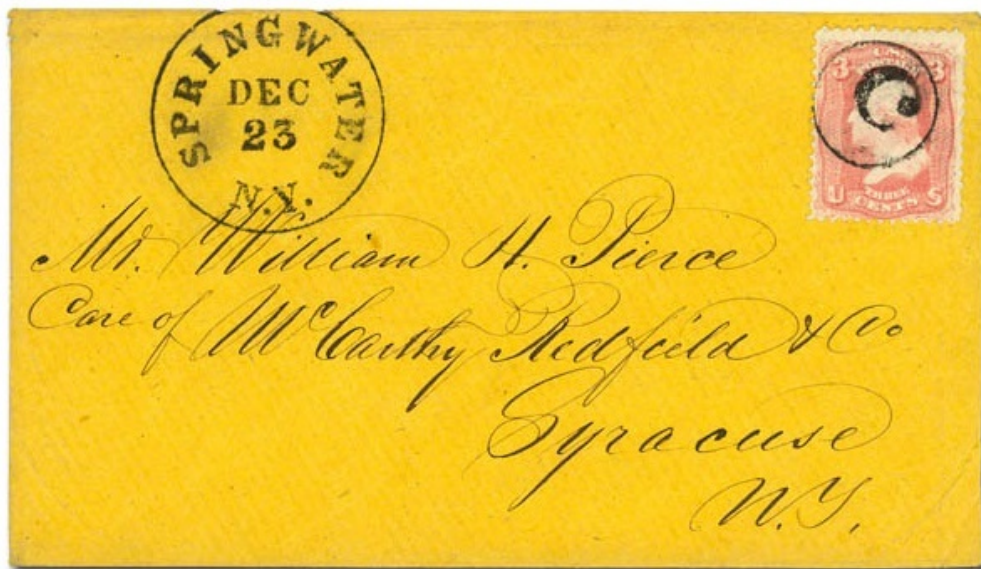 SPRINGWATER
DEC
23
N.Y.
3 3
C
U THREE S
CENTS
Mr. William H. Pierce
Care of McCarthy Redfield & Co
Syracuse
N.Y.